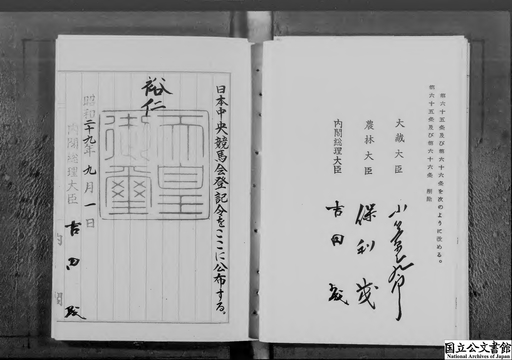 第六十五条及び第六十六条を次のように改める。
第六十五条及び第六十六条 削除
大蔵大臣
小笠原九郎
農林大臣
保利茂
内閣総理大臣
吉田茂
日本中央競馬会登記令をここに公布する。
裕仁
天皇御璽
昭和二十九年九月一日
内閣総理大臣
吉田茂
国立公文書館
National Archives of Japan